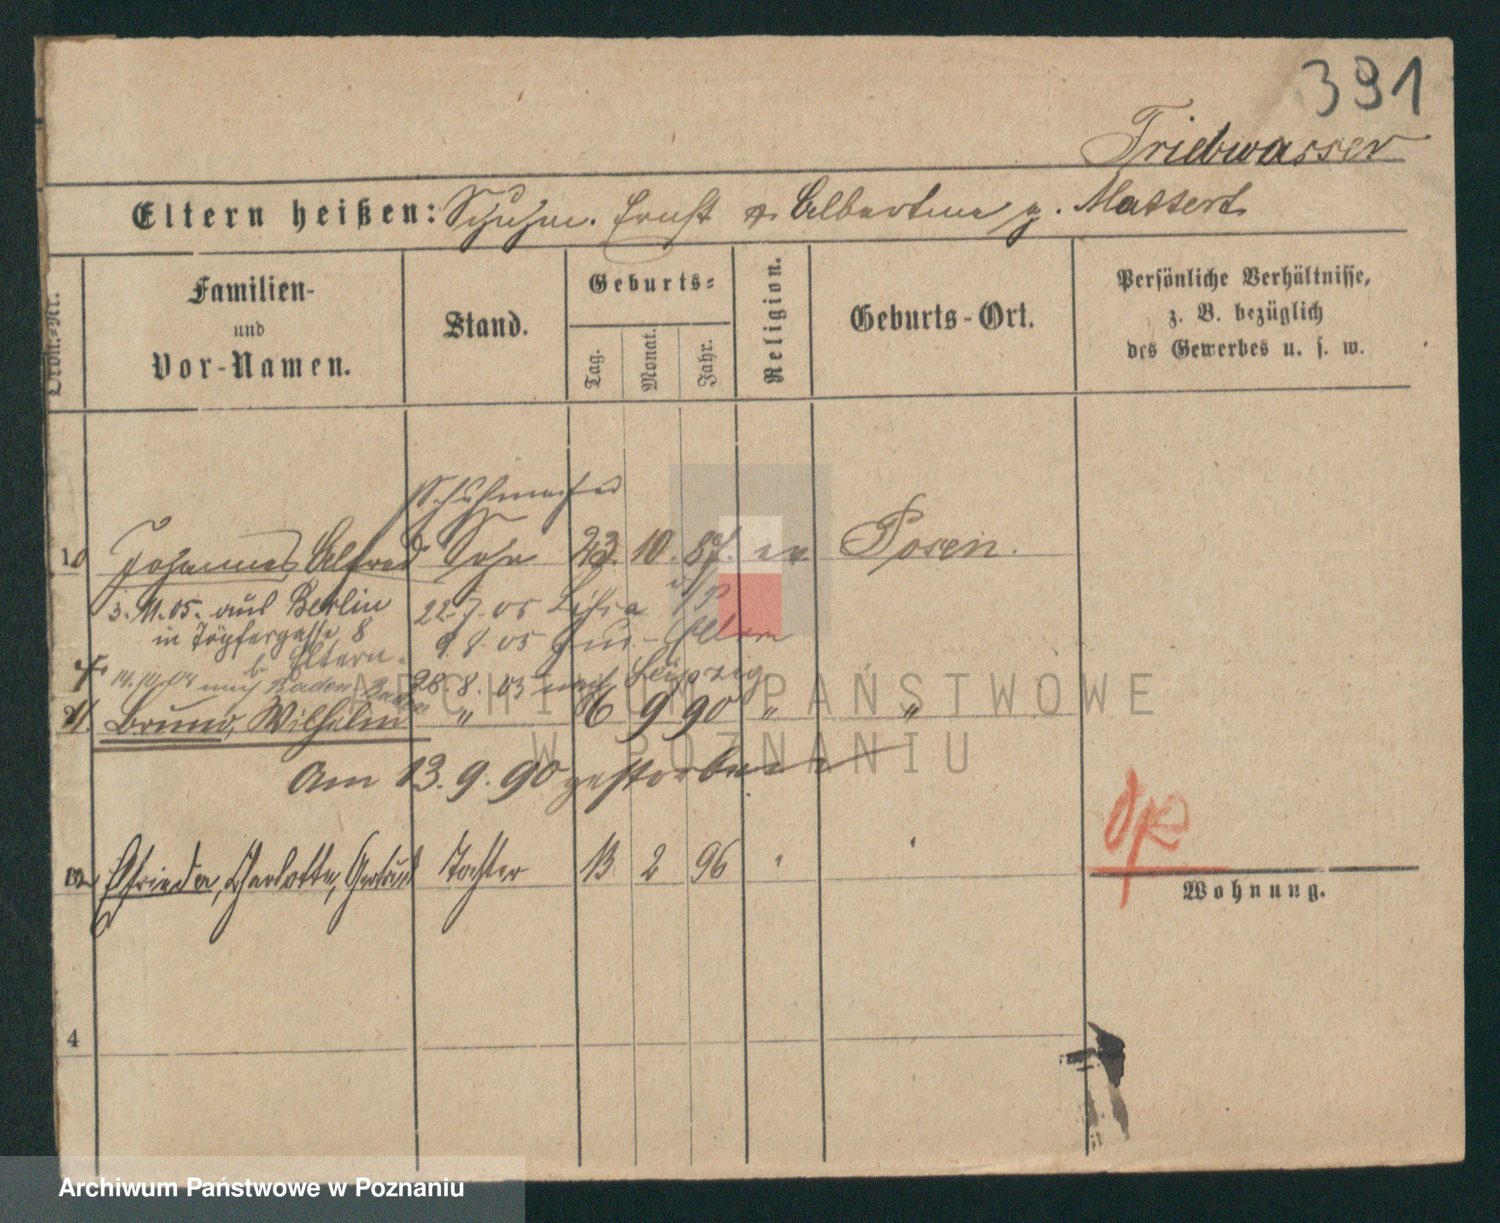 391
Triebwasser
Eltern heißen: Schuhm. Ernst u. Albertine g. Massert
Ordn.-Nr.
Familien-
und
Vor-Namen.
Stand.
Geburts-
Tag.
Monat.
Jahr.
Religion.
Geburts-Ort.
Persönliche Verhältnisse,
z. B. bezüglich
des Gewerbes u. s. w.
Schuhmacher
10 Johannes, Alfred Sohn 23. 10. 87. ev Posen.
3. 11. 05. aus Berlin
in Töpfergasse 8
b. Eltern.
22. 7. 05 Lissa i/P
9 8. 05 zur. Eltern
14. 10. 04 nach Baden-Baden
28. 8. 03 nach Leipzig
11. Bruno, Wilhelm " 6 9 90 " "
Am 13. 9. 90 gestorben
12 Elfrieda, Charlotte, Gertrud Tochter 13 2 96 " "
Wohnung.
4
ARCHIWUM PAŃSTWOWE
W POZNANIU
Archiwum Państwowe w Poznaniu